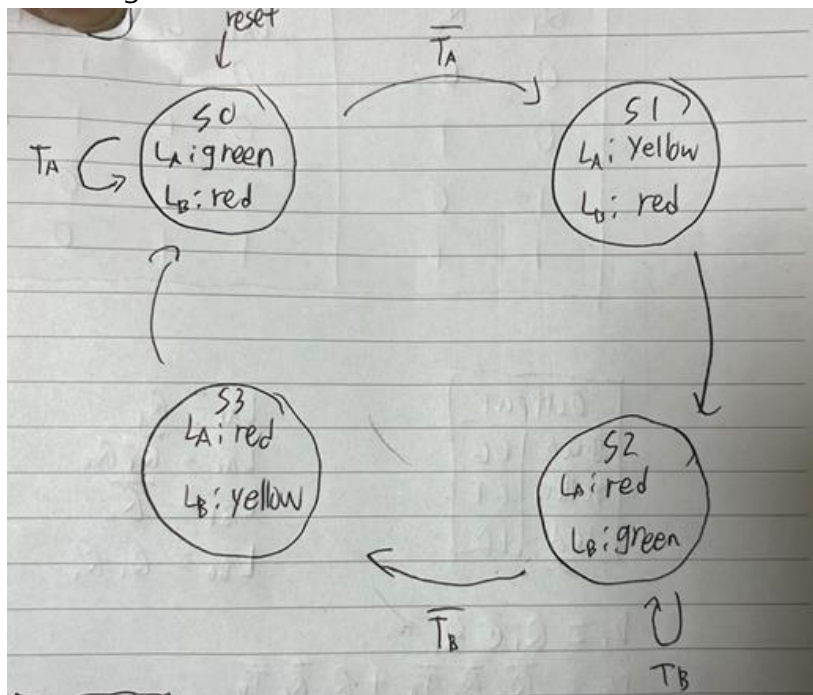 reset
T̅A̅
S0
LA: green
LB: red
TA
S1
LA: Yellow
LB: red
S3
LA: red
LB: yellow
S2
LA: red
LB: green
T̅B̅
TB